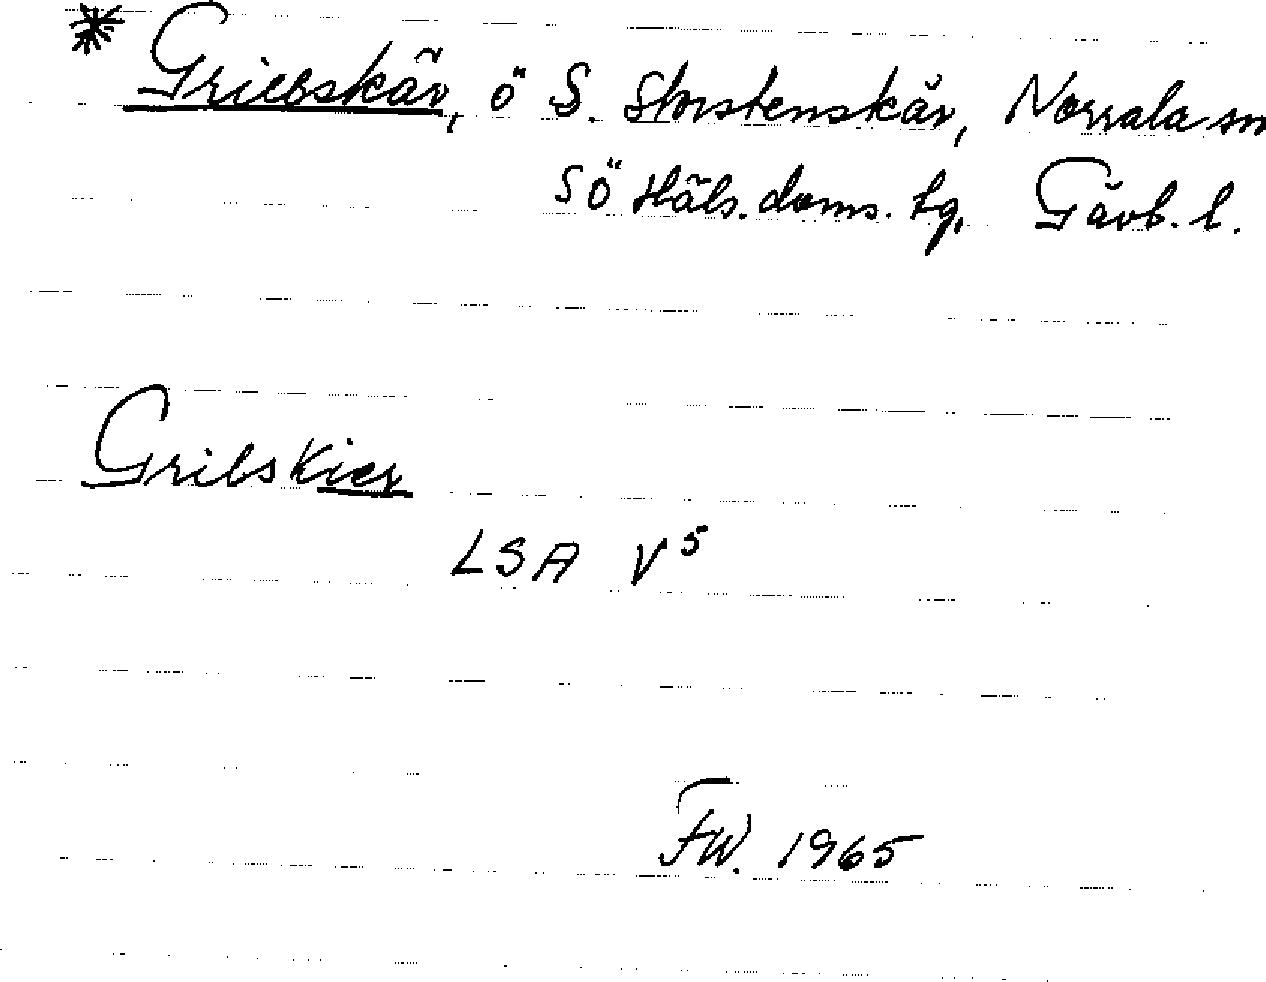 * Griebskär, ö S. Storstenskär, Norrala sn
SÖ Häls. doms. tg. Gävb. l.
Gribskier
LSA V⁵
FW. 1965